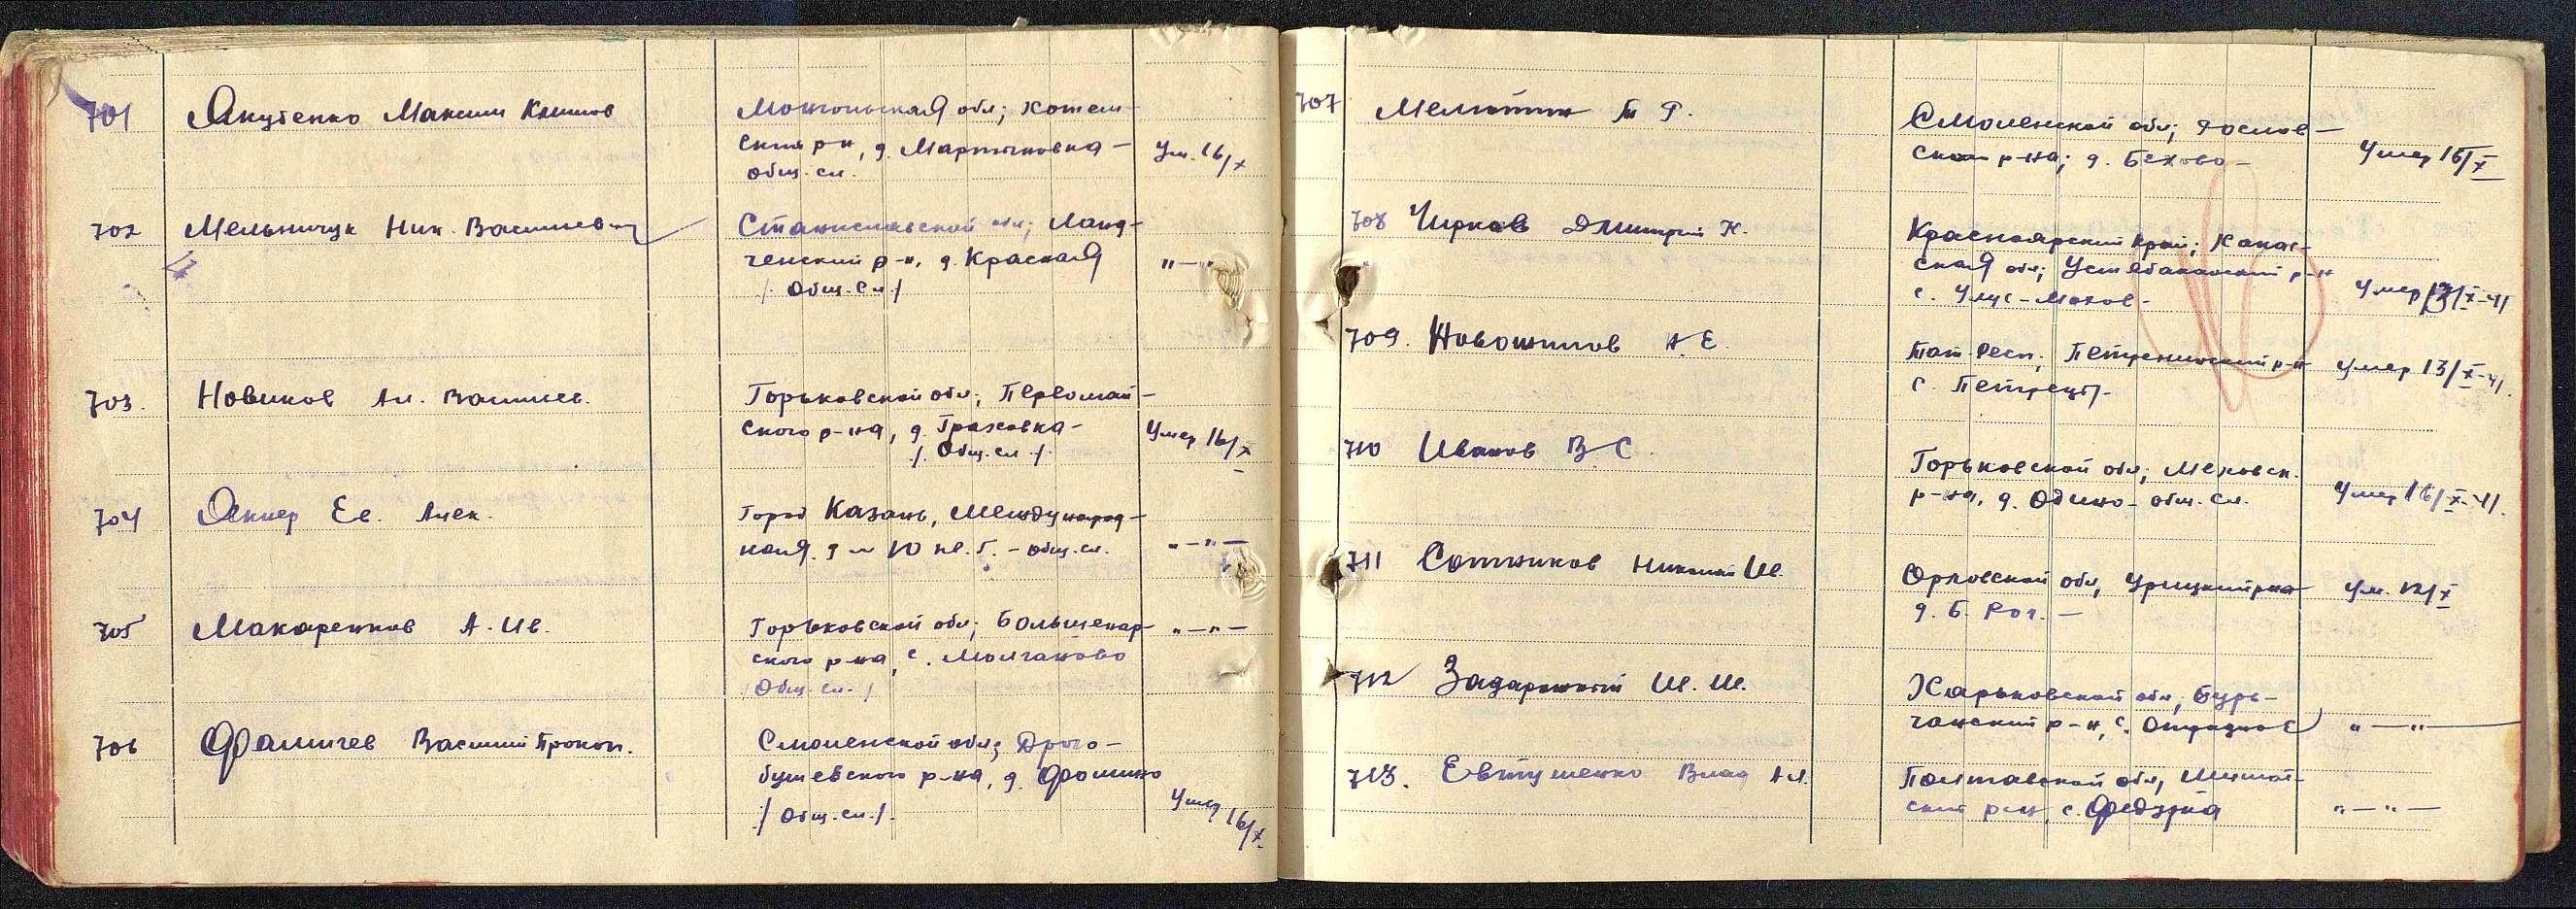 701 Якубенко Максим Климов
обл; Котем-
ский р-н, д. Мартыновка -
общ. сл.
Ум. 16/X
702 Мельничук Ник. Васильевич
Станиславской обл;
ченский р-н, д. Красная
/ Общ. сл /
"—"
703. Новиков Ал. Васильев.
Горьковской обл; Первомай-
ского р-на, д. Граховка -
/. Общ. сл /.
Умер 16/X
704 Ев. Алек.
Город Казань, Международ-
ная д 10 кв. - общ. сл.
"—"—
705 Макаренков А. Ив.
Горьковской обл;
ского р-на, с. Молчаново
/ Общ. сл. /
"—"—
706 Фамичев Василий Прокоп.
Смоленской обл; Дрого-
бужевского р-на, д. Фомино
/ Общ. сл. /.
Умер 16/X
707 Т Р.
Смоленской обл; Рослов-
ском р-на; д. Бехово -
Умер 15/X
708 Чирков Дмитрий К.
Красноярский край; Хакас-
ская обл; Устьабаканский р-н
с. Улус-Мохов -
Умер 13/X-41
709. Новошилов А. Е.
Тат. Респ;
с. Петрецы -
Умер 13/X-41.
710 Иванов В С.
Горьковской обл;
р-на, д. Одино - общ. сл.
Умер 16/X-41.
711 Сотников Николай Ив.
Орловской обл, Урицкий р-на
д. Б. Рог. —
Ум. 12/X
712 И. И.
Харьковской обл, Бурь-
чанский р-н, с. Отрадное
"—"—
713. Евтушенко Влад Ал.
Полтавской обл,
ский р-н, с.
"—"—